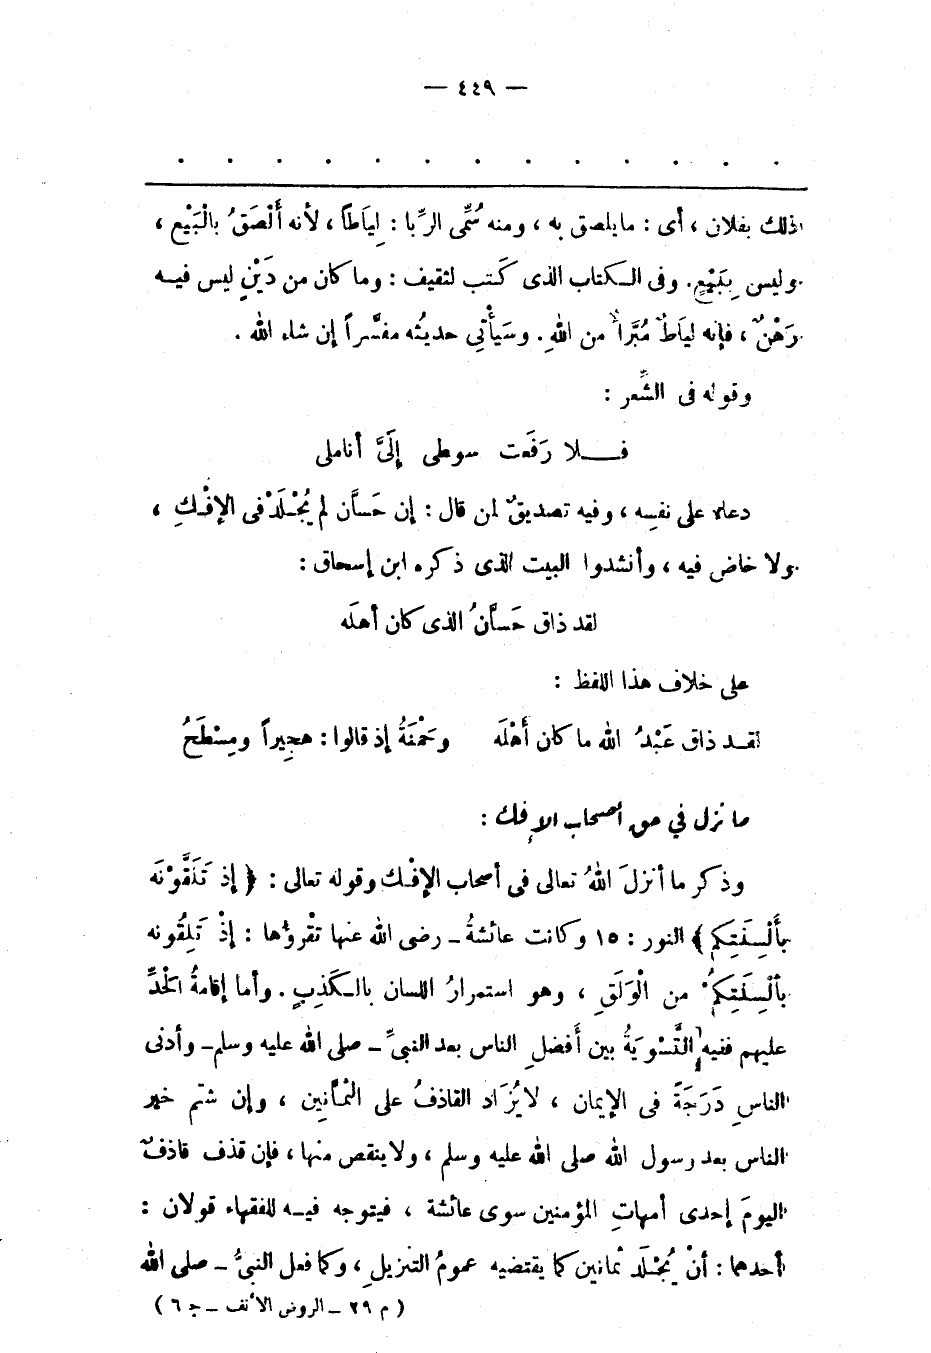 — ٤٤٩ —
. . . . . . . . . . . . .
ذلك بفلان ، أى : مايلصق به ، ومنه سُمِّى الرِّبا : لِيَاطاً ، لأنه أَلْصَقُ بالْبَيْعِ ،
وليس بِبَيْعٍ . وفى الـكتاب الذى كَتب لثقيف : وما كان من دَيْنٍ ليس فيـه
رَهْنٌ ، فإنه لِيَاطٌ مُبَرَّأٌ من اللهِ . وسَيأْتِى حديثُه مفسَّراً إن شاء الله .
وقوله فى الشِّعر :
فــلا رَفَعت سوطى إِلَىَّ أناملى
دعاء على نفسِه ، وفيه تصديقٌ لمن قال : إن حَسَّان لم يُجْـلَدْ فى الإفْـكِ ،
ولا خاض فيه ، وأنشدوا البيت الذى ذكره ابن إسحاق :
لقد ذاق حَسَّانُ الذى كان أهلَه
على خلاف هذا اللفظ :
لقـد ذاق عَبْدُ الله ما كان أَهْلَه وحَمْنَةُ إذ قالوا : هجِيراً ومِسْطَحُ
ما نزل في حق أصحاب الإفك :
وذكر ما أنزلَ اللهُ تعالى فى أصحاب الإفْـك وقوله تعالى : ﴿ إذ تَلَقَّوْنَه
بأَلْسِنَتِكم ﴾ النور : ١٥ وكانت عائشةُ ـ رضى الله عنها تقْرؤها : إذْ تَلِقُونه
بأَلْسِنَتِكمُ من الْوَلَقِ ، وهو استمرارُ اللسان بالـكَذِبِ . وأما إقامةُ الحْدِّ
عليهم ففيه التَّسْوِيَةُ بين أفضلِ الناس بعد النبىِّ ـ صلى الله عليه وسلم ـ وأدنى
الناسِ دَرَجَةً فى الإيمان ، لا يُزَاد القاذفُ على الثمَانِين ، وإن شتم خير
الناس بعد رسول الله صلى الله عليه وسلم ، ولا ينقص منها ، فإن قذف قاذفٌ
اليومَ إحدى أمهاتِ المؤمنين سوى عائشة ، فيتوجه فيـه للفقهاء قولان :
أحدهما : أنْ يُجْـلَد ثمانين كما يقتضيه عمومُ التنزيلِ ، وكما فعل النبىُّ ـ صلى الله
( م ٢٩ ـ الروض الأنف ـ ج ٦ )